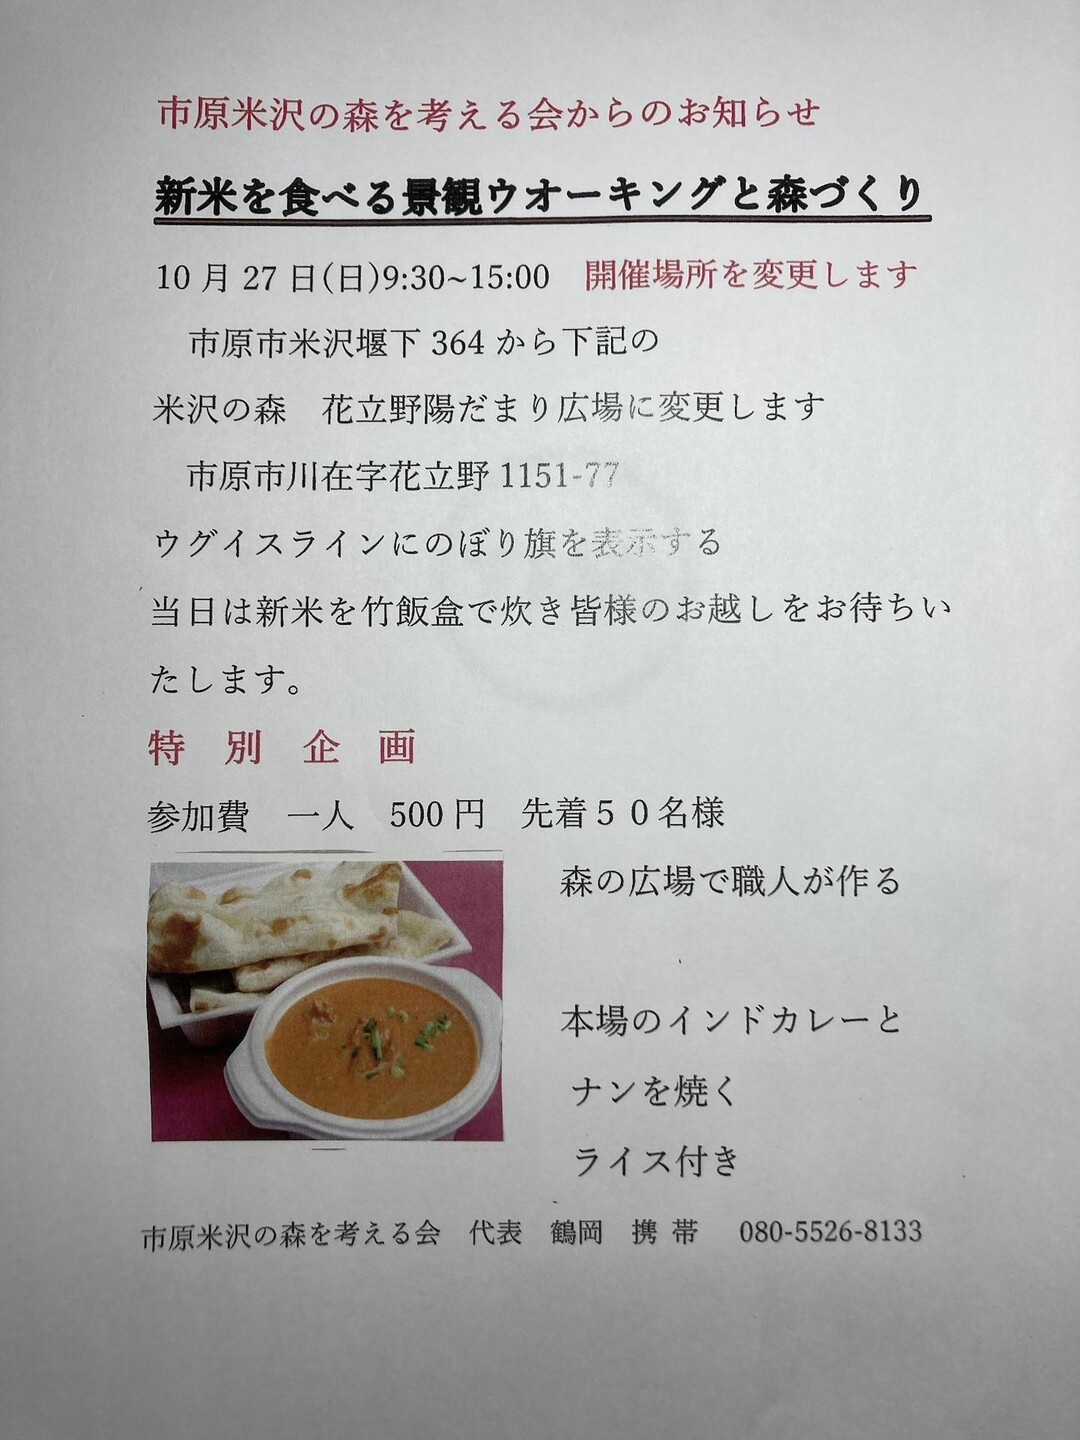 市原米沢の森を考える会からのお知らせ
新米を食べる景観ウオーキングと森づくり
10月27日(日)9:30~15:00　開催場所を変更します
市原市米沢堰下364から下記の
米沢の森　花立野陽だまり広場に変更します
市原市川在字花立野1151-77
ウグイスラインにのぼり旗を表示する
当日は新米を竹飯盒で炊き皆様のお越しをお待ちい
たします。
特　別　企　画
参加費　一人　500円　先着５０名様
森の広場で職人が作る
本場のインドカレーと
ナンを焼く
ライス付き
市原米沢の森を考える会　代表　鶴岡　携 帯　080-5526-8133